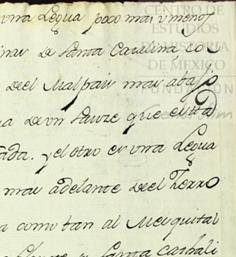 una Legua poco mas v menos
inar de Santa Catalina co
Deel Malpais mas abajo
a de vn Sauze que está
ada. y el otro es vna Legua
mas adelante deel Zerro
a como tan al Mesquital
y Santa Cathali
CENTRO DE
ESTUDIOS
DE MEXICO